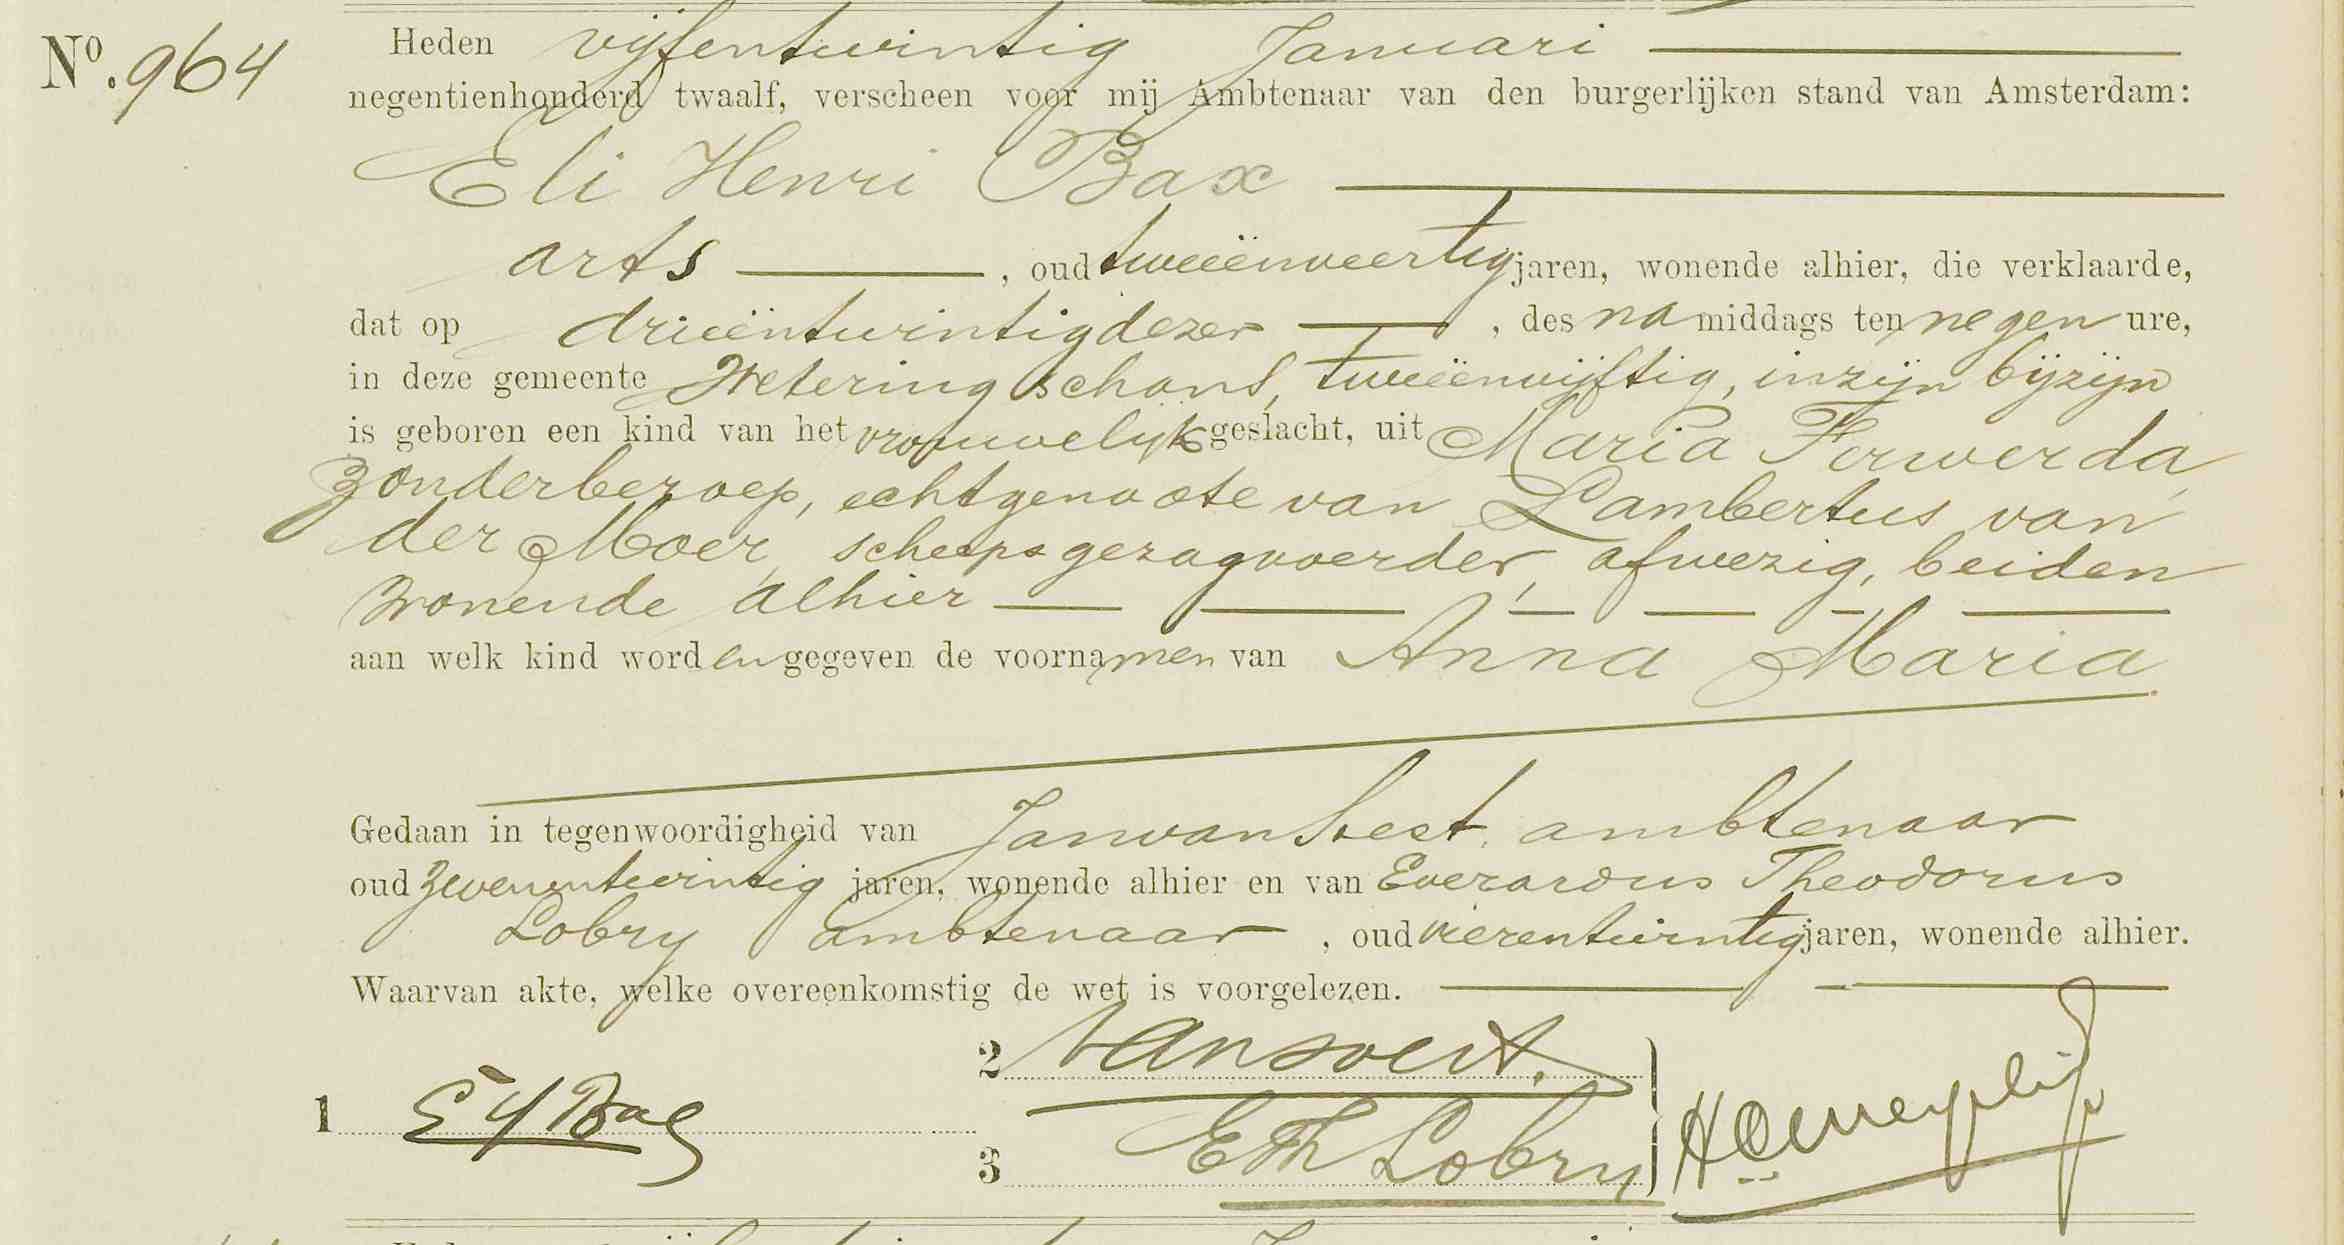 Nº. 964
Heden vijfentwintig Januari
negentienhonderd twaalf, verscheen voor mij Ambtenaar van den burgerlijken stand van Amsterdam:
Eli Henri Bax
arts, oud tweeënveertig jaren, wonende alhier, die verklaarde,
dat op drieëntwintig dezer, des namiddags ten negen ure,
in deze gemeente Weteringschans, tweeënvijftig, in zijn bijzijn
is geboren een kind van het vrouwelijk geslacht, uit Maria Ferwerda,
zonder beroep, echtgenoote van Lambertus van
der Moer, scheepsgezagvoerder, afwezig, beiden
wonende alhier
aan welk kind worden gegeven de voornamen van Anna Maria
Gedaan in tegenwoordigheid van Jan van Soest, ambtenaar
oud zevenentwintig jaren, wonende alhier en van Everardus Theodorus
Lobry ambtenaar, oud vierentwintig jaren, wonende alhier.
Waarvan akte, welke overeenkomstig de wet is voorgelezen.
2 van Soest.
1 E H Bax
3 E Th Lobry